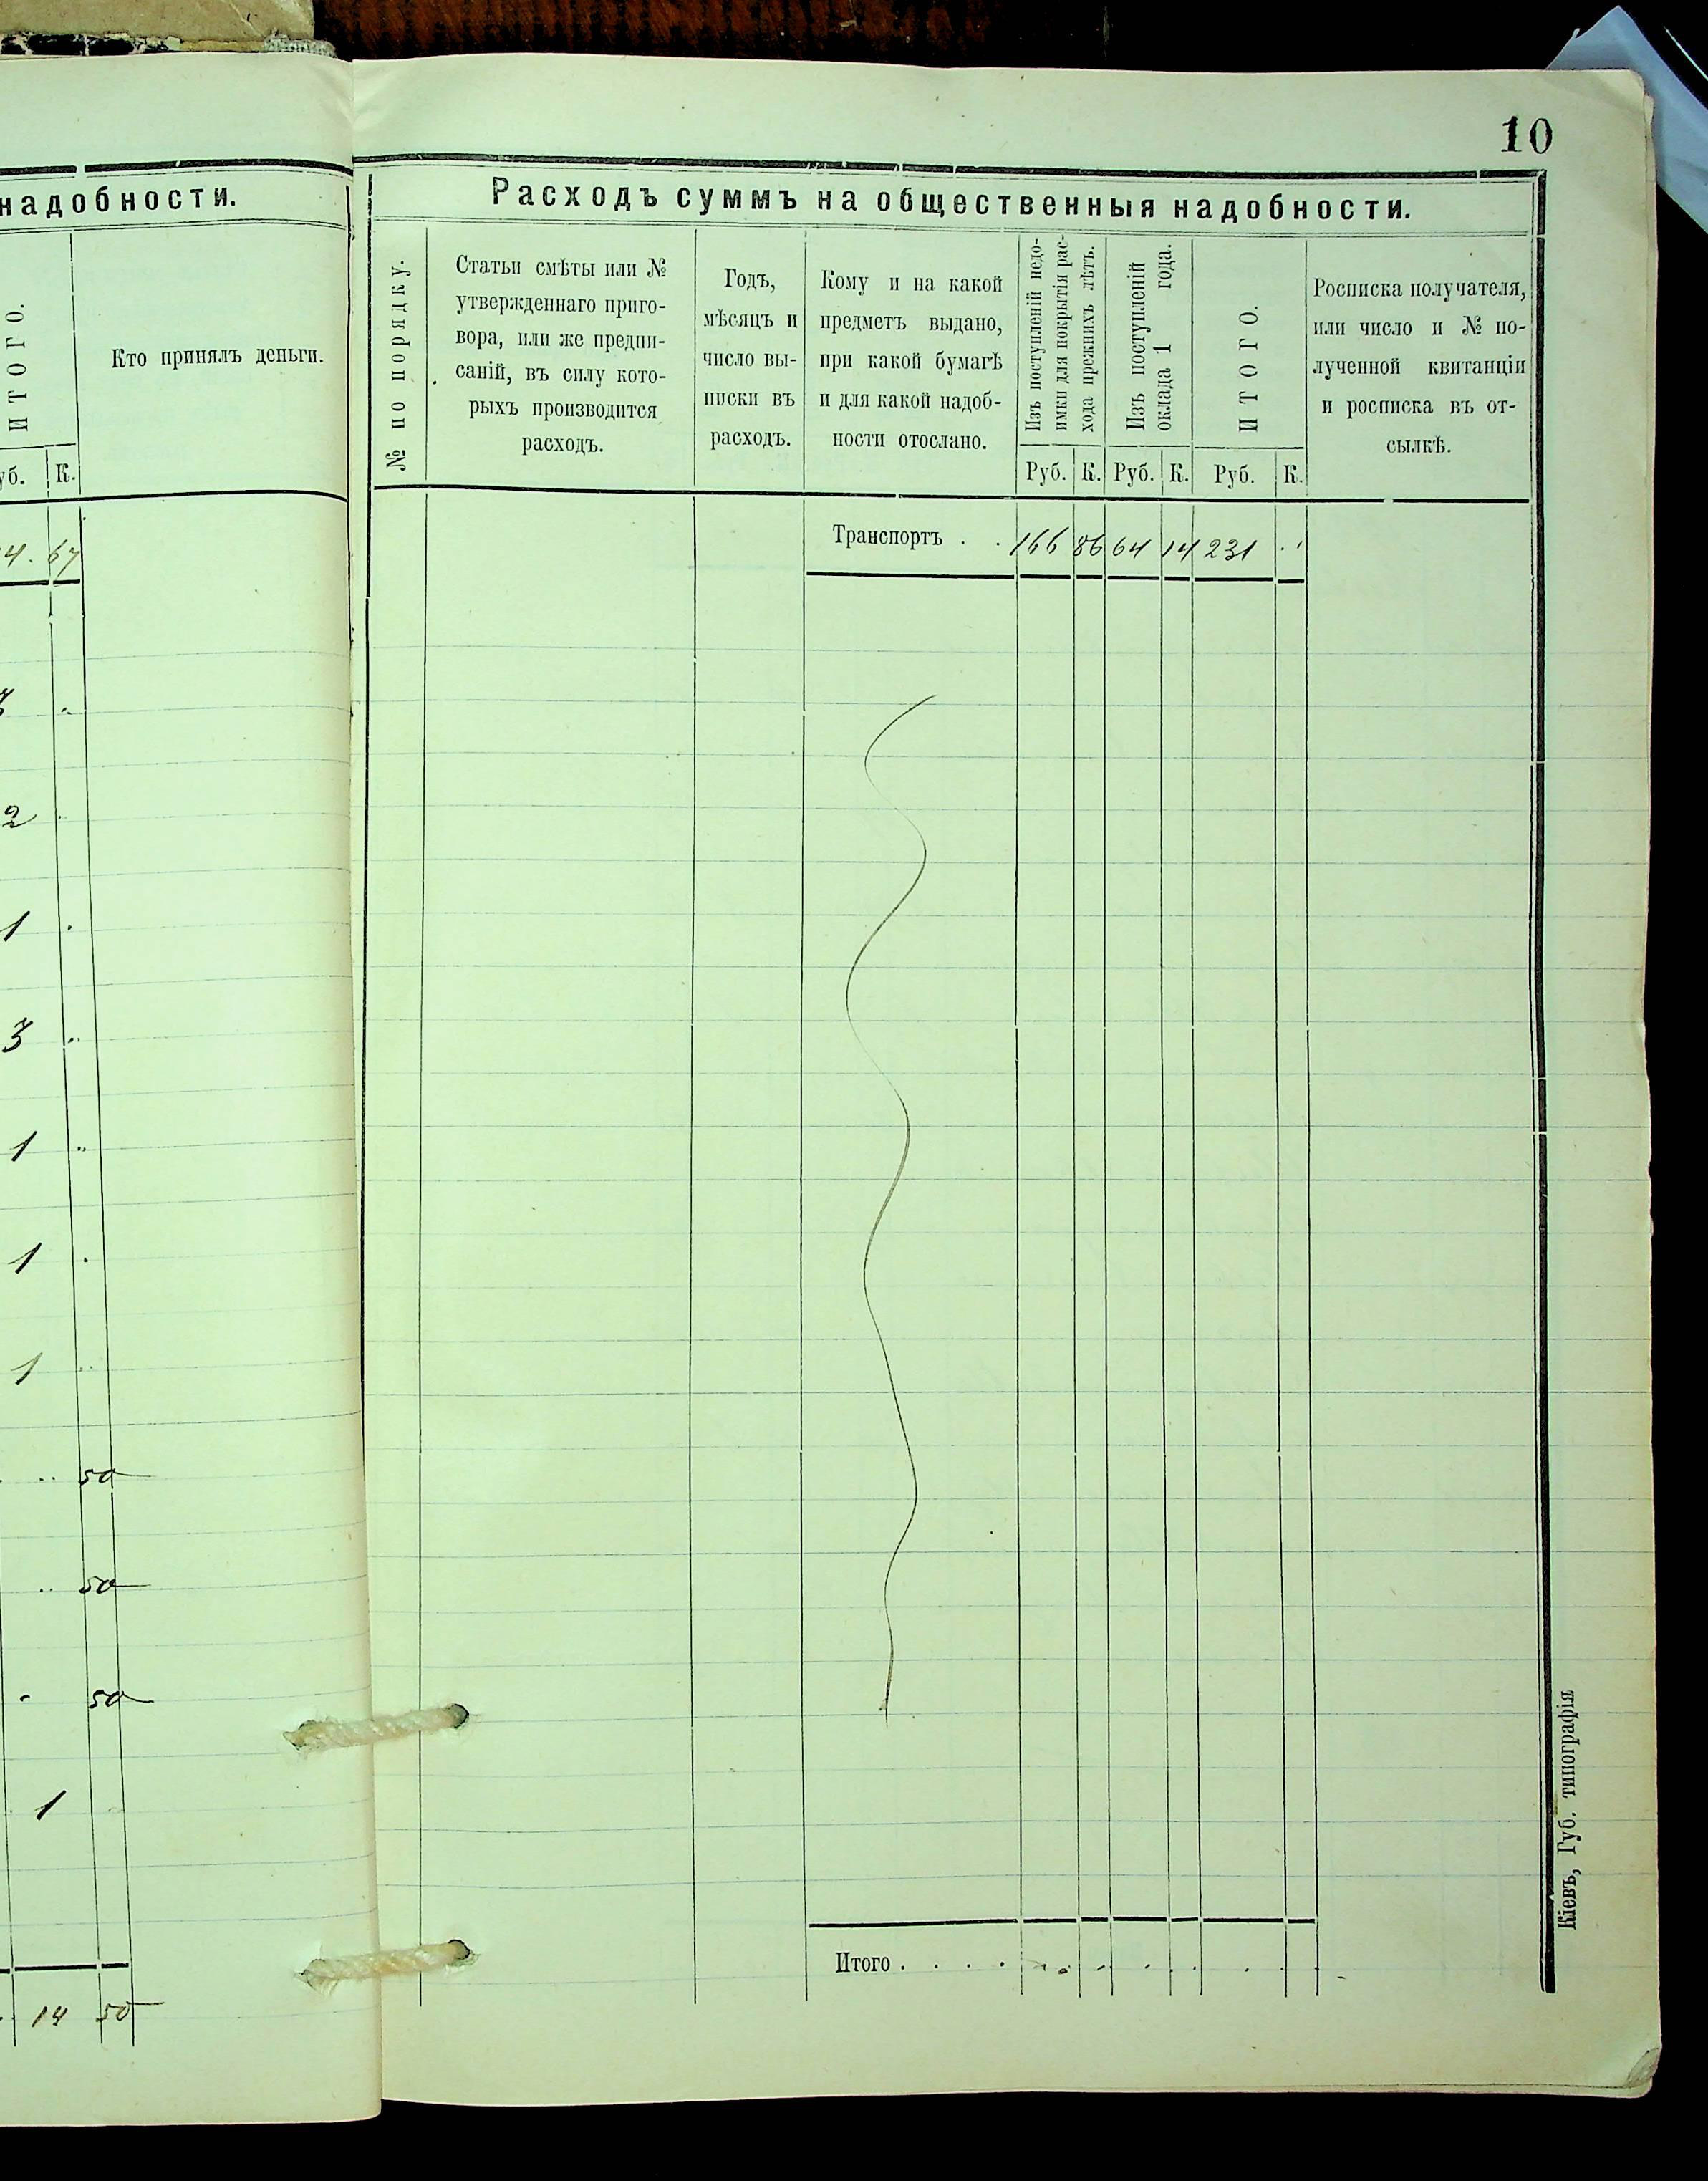 надобности.
ИТОГО.
Кто принялъ деньги.
К.
67
2
1
3
1
1
1
50
50
50
1
14 50
10
Расходъ суммъ на общественныя надобности.
№ по порядку.
Статьи смѣты или №
утвержденнаго приго-
вора, или же предпи-
саній, въ силу кото-
рыхъ производится
расходъ.
Годъ,
мѣсяцъ и
число вы-
писки въ
расходъ.
Кому и на какой
предметъ выдано,
при какой бумагѣ
и для какой надоб-
ности отослано.
Изъ поступленій недо-
имки для покрытія рас-
хода прежнихъ лѣтъ.
Изъ поступленій
оклада 1 года.
ИТОГО.
Росписка получателя,
или число и № по-
лученной квитанціи
и росписка въ от-
сылкѣ.
Руб. К. Руб. К. Руб. К.
Транспортъ . . 166 86 64 14 231 . .
Итого . . . .
Кіевъ, Губ. типографія